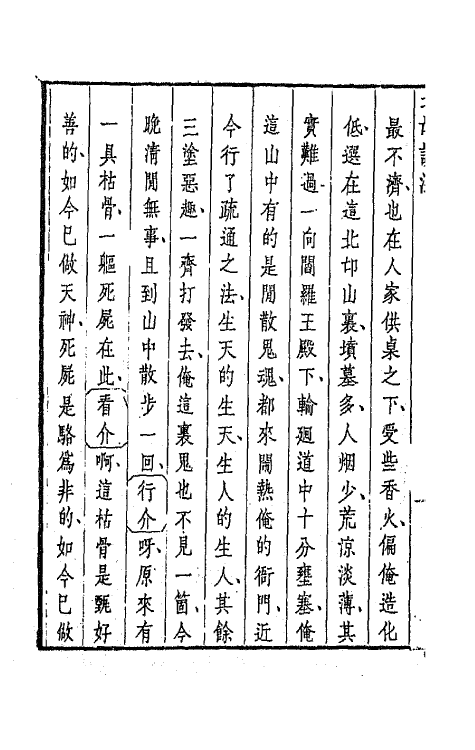 最不濟、也在人家供桌之下、受些香火、偏俺造化
低、選在這北邙山裏、墳墓多、人烟少、荒涼淡薄、其
實難過、一向閻羅王殿下、輪迴道中十分壅塞、俺
這山中有的是閒散鬼魂、都來鬧熱俺的衙門、近
今行了疏通之法、生天的生天、生人的生人、其餘
三塗惡趣、一齊打發去、俺這裏鬼也不見一箇、今
晚清閒無事、且到山中散步一回、行介呀、原來有
一具枯骨、一軀死屍在此、看介啊、這枯骨是甄好
善的、如今已做天神、死屍是駱爲非的、如今已做